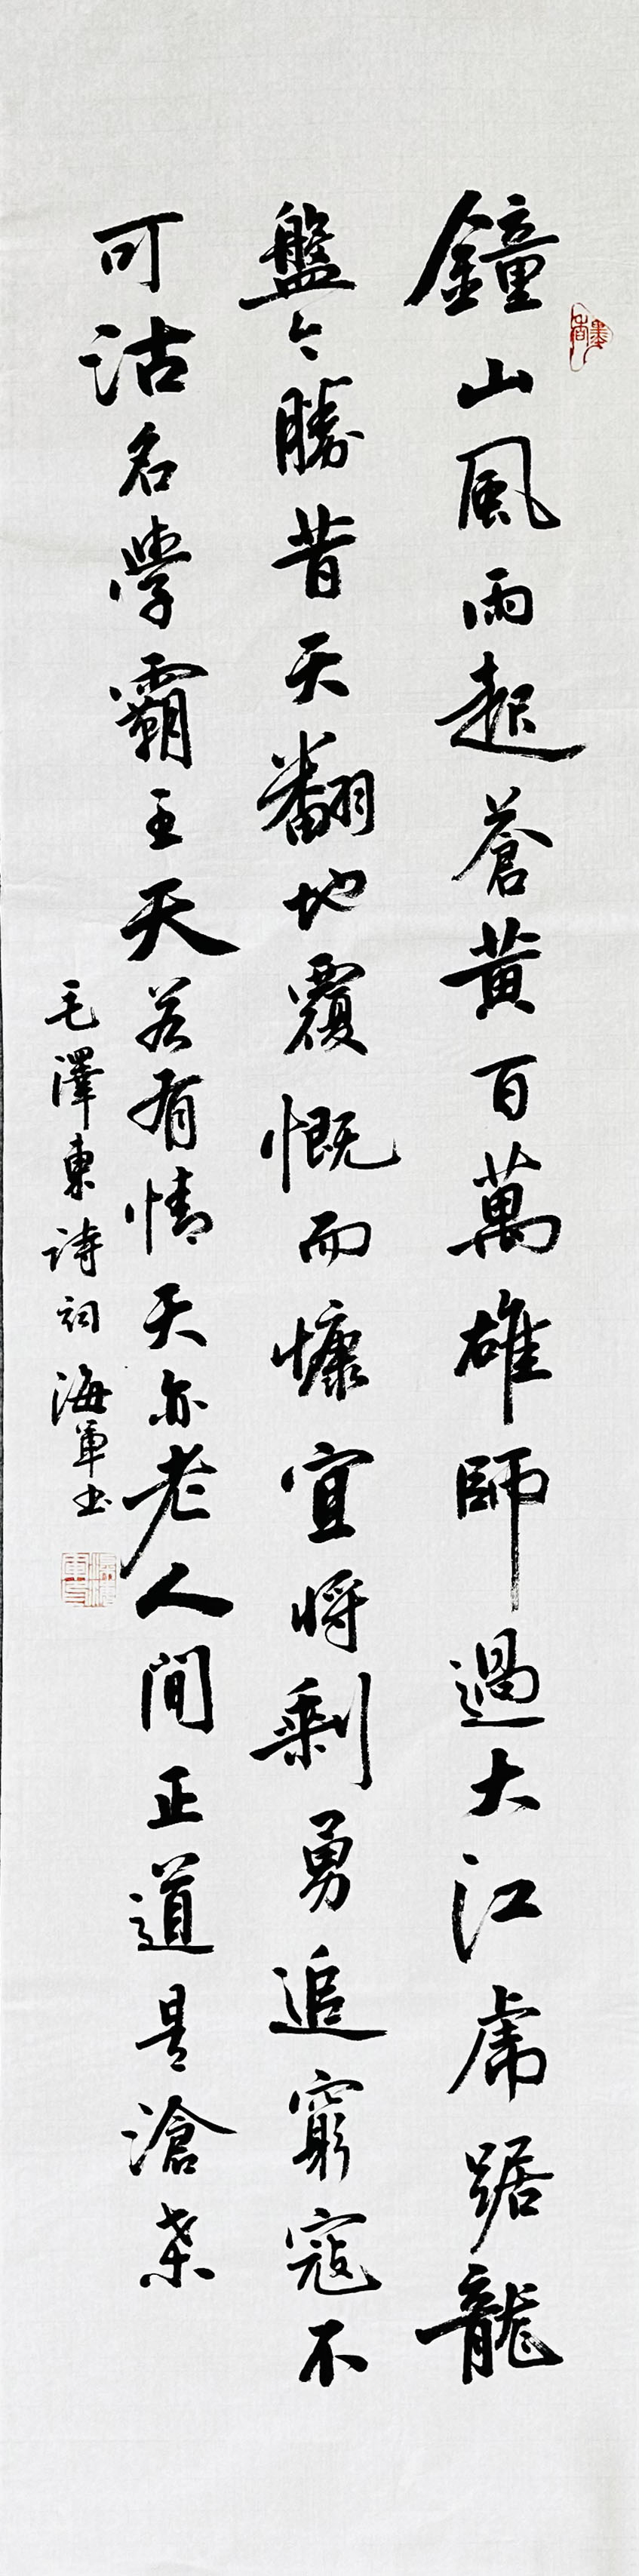 鐘山風雨起蒼黃百萬雄師過大江虎踞龍
盤今勝昔天翻地覆慨而慷宜將剩勇追窮寇不
可沽名學霸王天若有情天亦老人間正道是滄桑
毛澤東詩詞海軍书